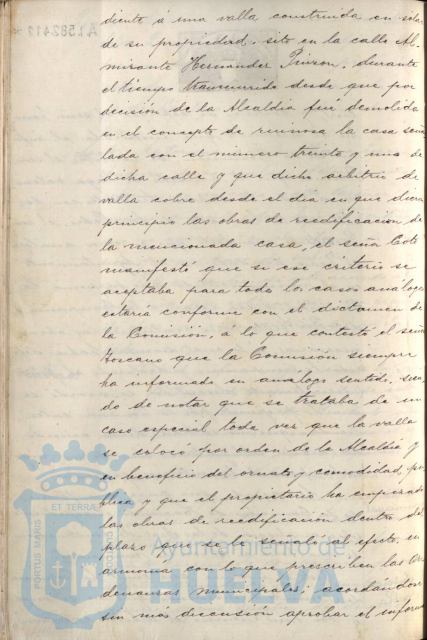 diente á una valla construida en solar
de su propiedad, sito en la calle Al-
mirante Hernandez Pinzon, durante
el tiempo transcurrido desde que por
decisión de la Alcaldia fué demolida
en el concepto de ruinosa la casa seña
lada con el número treinta y uno de
dicha calle y que dicho arbitrio de
valla cobre desde el dia en que dieron
principio las obras de reedificación de
la mencionada casa, el señor Coto
manifestó que si ese criterio se
aceptaba para todos los casos análogos
estaria conforme con el dictamen de
la Comisión, á lo que contestó el señor
Toscano que la Comisión siempre
ha informado en análogo sentido, sien
do de notar que se trataba de un
caso especial toda vez que la valla
se colocó por orden de la Alcaldia y
en beneficio del ornato y comodidad pú
blica y que el propietario ha empezado
las obras de reedificación dentro del
plazo que se le señaló al efecto, en
armonia con lo que prescriben las Or
denanzas municipales; acordándose
sin más discusión aprobar el informe
A1582419
PORTUS MARIS ET TERRAE
Ayuntamiento de
HUELVA